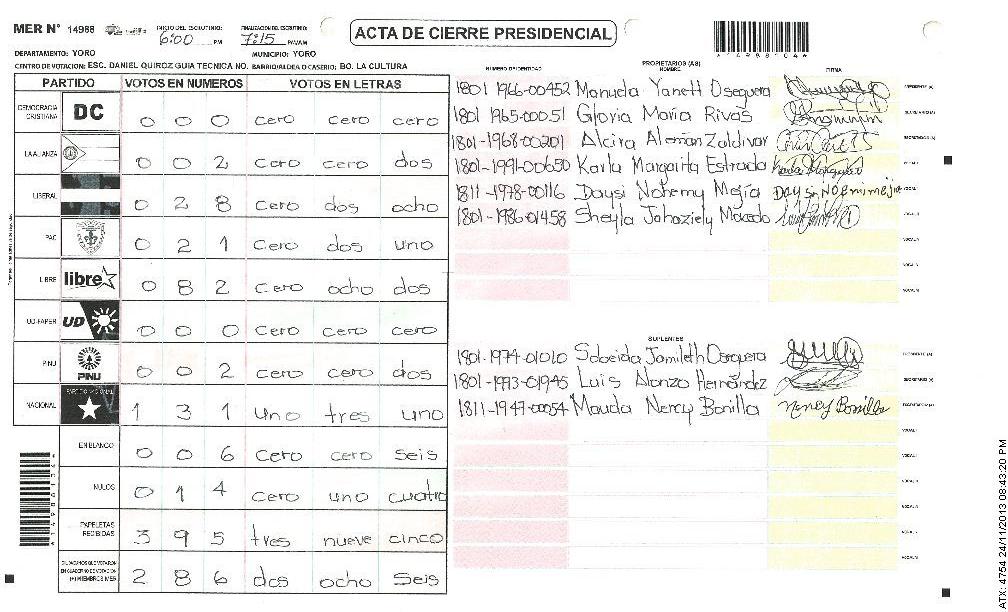 MER N° 14988 INICIO DEL ESCRUTINIO: 6:00 PM FINALIZACION DEL ESCRUTINIO: 7:15 PM/AM
ACTA DE CIERRE PRESIDENCIAL
DEPARTAMENTO: YORO MUNICIPIO: YORO
CENTRO DE VOTACION: ESC. DANIEL QUIROZ GUIA TECNICA NO. BARRIO/ALDEA O CASERIO: BO. LA CULTURA
PARTIDO VOTOS EN NUMEROS VOTOS EN LETRAS
DEMOCRACIA CRISTIANA DC 0 0 0 cero cero cero
LA ALIANZA 0 0 2 cero cero dos
LIBERAL 0 2 8 cero dos ocho
PAC 0 2 1 cero dos uno
LIBRE libre 0 8 2 cero ocho dos
UD-FAPER UD 0 0 0 cero cero cero
PINU PINU 0 0 2 cero cero dos
NACIONAL PARTIDO NACIONAL 1 3 1 uno tres uno
EN BLANCO 0 0 6 cero cero seis
NULOS 0 1 4 cero uno cuatro
PAPELETAS RECIBIDAS 3 9 5 tres nueve cinco
CIUDADANOS QUE VOTARON EN CUADERNO DE VOTACION (+) MIEMBROS MER 2 8 6 dos ocho seis
NUMERO DE IDENTIDAD PROPIETARIOS (AS) NOMBRE FIRMA
1801 1966-00452 Manuela Yanett Oseguera PRESIDENTE (A)
1801 1965-00051 Gloria María Rivas SECRETARIO (A)
1801-1968-00201 Alcira Alemán Zaldivar ESCRUTADOR (A)
1801-1991-00650 Karla Margarita Estrada VOCAL I
1811-1978-00116 Daysi Nohemy Mejía Daysi Noemi mejia VOCAL
1801-1986-01458 Sheyla Jahaziely Macedo VOCAL
VOCAL
VOCAL
VOCAL
SUPLENTES
1801-1974-01010 Sobeida Jamileth Oseguera PRESIDENTE (A)
1801-1973-01945 Luis Alonzo Hernández SECRETARIO (A)
1811-1947-00054 Mauda Nency Bonilla Nency Bonilla ESCRUTADOR (A)
VOCAL
VOCAL
VOCAL
VOCAL
VOCAL
VOCAL
ATX: 4754 24/11/2013 08:43:20 PM